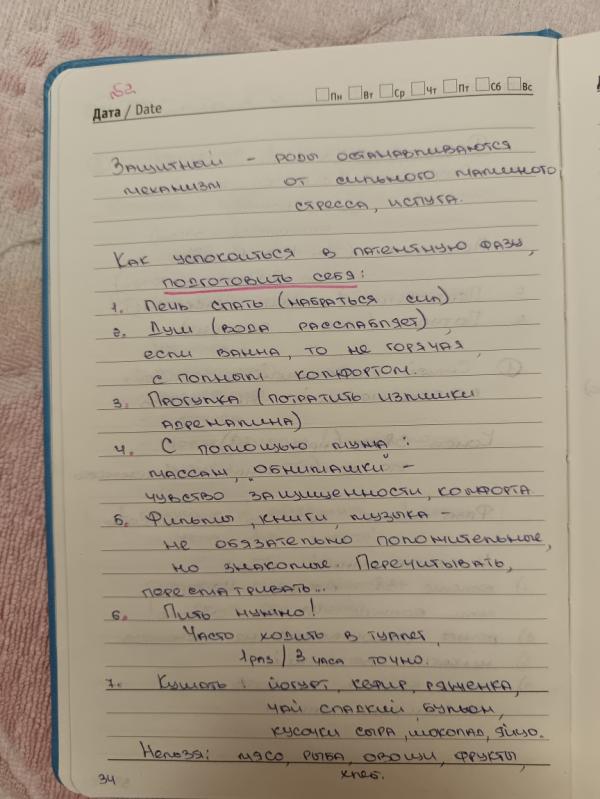 52
Дата / Date
Пн Вт Ср Чт Пт Сб Вс
Защитный – роды останавливаются
механизм от сильного мамин­ого
стресса, испуга.
Как успокоиться в латентную фазу,
подготовить себя:
1. Лечь спать (набраться сил).
2. Душ (вода расслабляет),
если ванна, то не горячая,
с полным комфортом.
3. Прогулка (потратить излишки
адреналина)
4. С помощью мужа:
массаж, "обнимашки" –
чувство защищенности, комфорта.
5. Фильмы, книги, музыка –
не обязательно положительные,
но знакомые. Перечитывать,
пересматривать...
6. Пить нужно!
Часто ходить в туалет,
1 раз / 3 часа точно.
7. Кушать: йогурт, кефир, ряженка,
чай сладкий, бульон,
кусочки сыра, шоколад, яйцо.
Нельзя: мясо, рыба, овощи, фрукты,
хлеб.
34